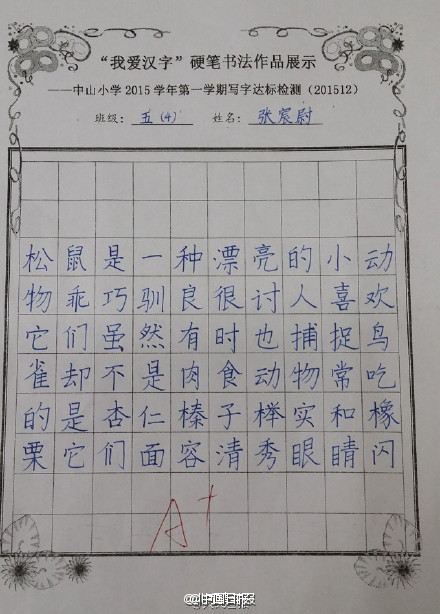 “我爱汉字”硬笔书法作品展示
——中山小学2015学年第一学期写字达标检测（201512）
班级：五(4) 姓名：张宸尉
松鼠是一种漂亮的小动
物乖巧驯良很讨人喜欢
它们虽然有时也捕捉鸟
雀却不是肉食动物常吃
的是杏仁榛子榉实和橡
栗它们面容清秀眼睛闪
A+
@中国日报